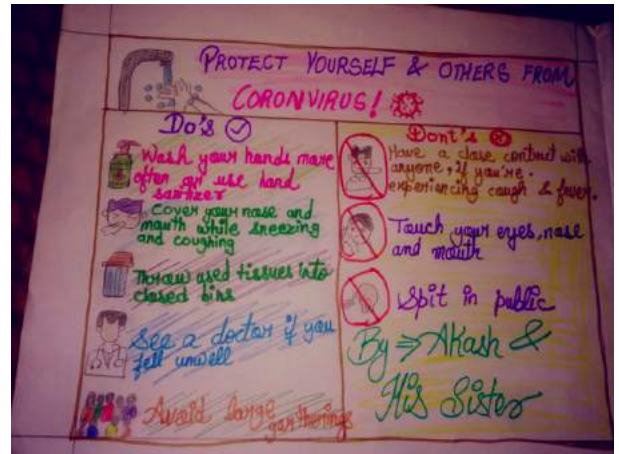 PROTECT YOURSELF & OTHERS FROM
CORONVIRUS!
Do's
Wash your hands more
often or use hand
sanitizer
Cover your nose and
mouth while sneezing
and coughing
Throw used tissues into
closed bins
See a doctor if you
fell unwell
Avoid large
gartherings
Dont's
Have a close contract with
anyone, if you're.
experiencing cough & fever.
Touch your eyes, nose
and mouth
Spit in public
By ⇒ Akash &
His Sister